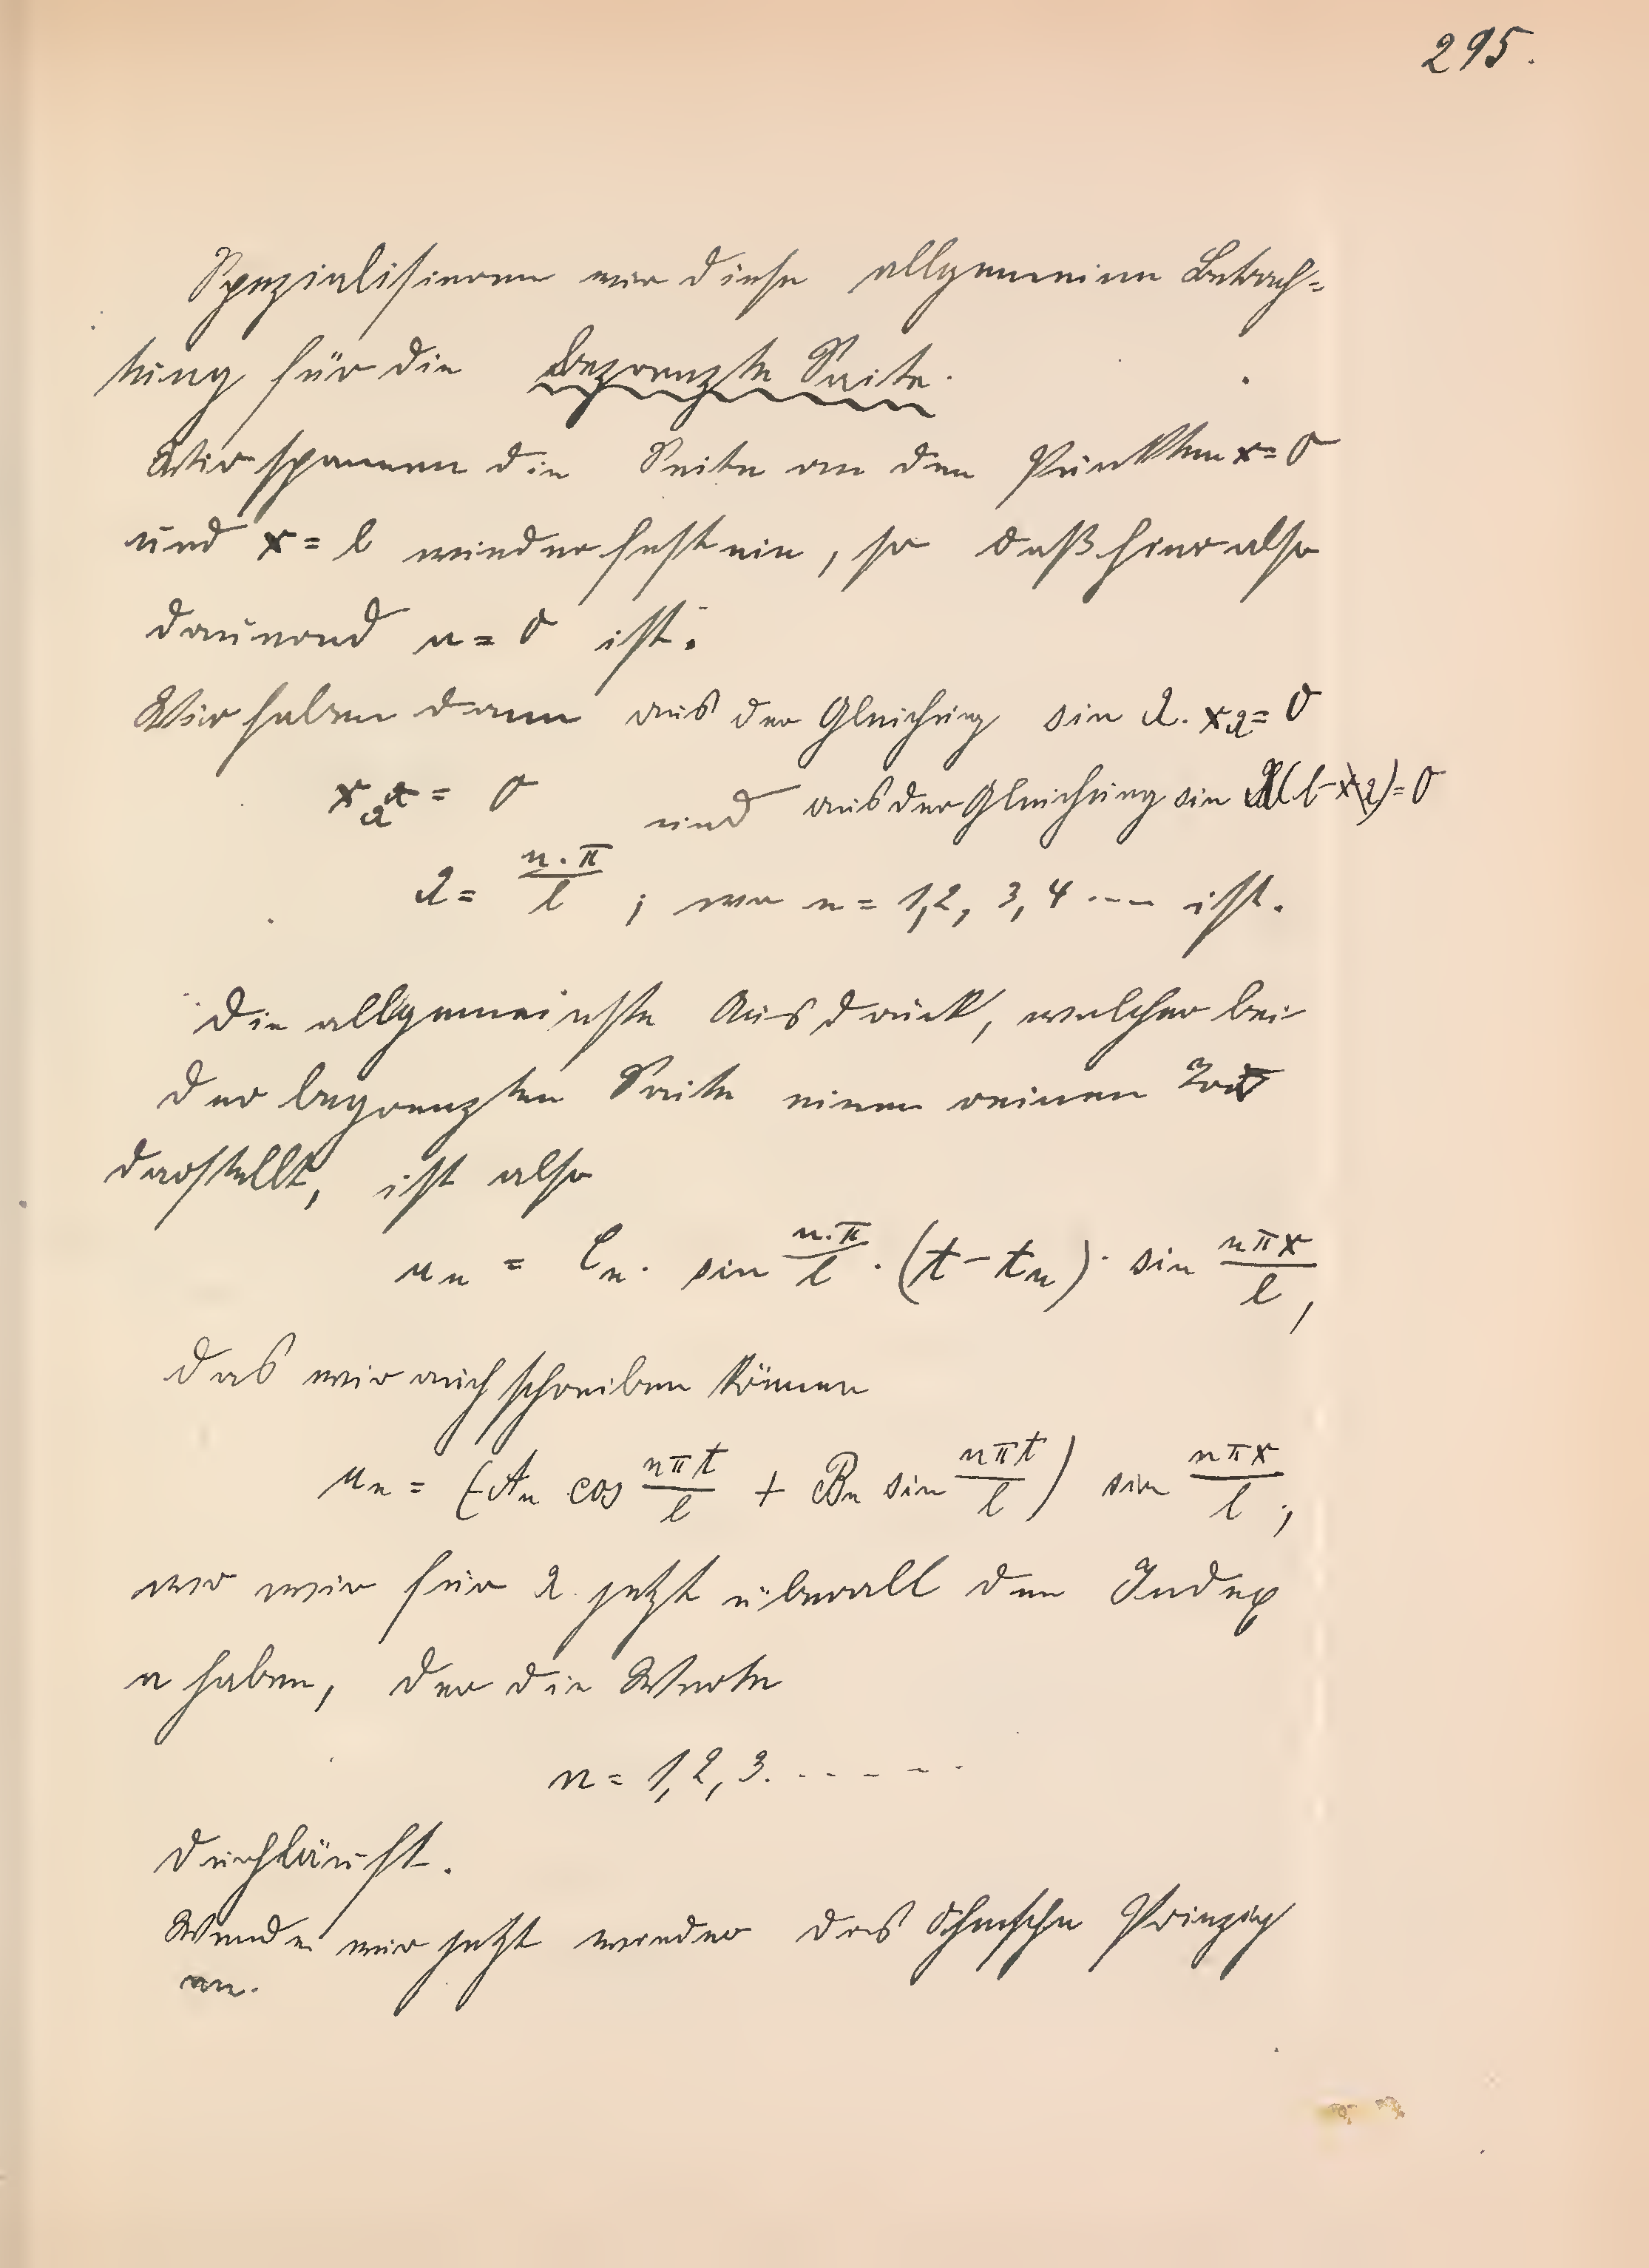 295.
Spezialisieren wir diese allgemeine Betrach=
tung für die begrenzte Saite.
Wir spannen die Saite an den Punkten x = 0
und x = l wieder fest ein, so daß hier also
dauernd u = 0 ist.
Wir haben dann aus der Gleichung sin λ. x_λ = 0
x_λ = 0 und aus der Gleichung sin λ(l-x_λ) = 0
λ = n.π/l ; wo n = 1,2, 3, 4 --- ist.
Die allgemeinste Ausdruck, welcher bei
der begrenzten Saite einen reinen
darstellt, ist also
u_n = C_n. sin n.π/l . (t - t_n) . sin nπx/l ,
das wir auch schreiben können
u_n = (A_n cos nπt/l + B_n sin nπt/l) sin nπx/l ;
wo wir für λ jetzt überall den Index
n haben, der die Werte
n = 1, 2, 3. - - - - -
durchläuft.
Wenden wir jetzt wieder das Ohmsche Prinzip
an.